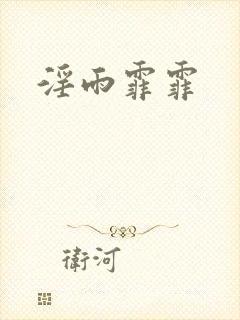 淫雨霏霏
衛河